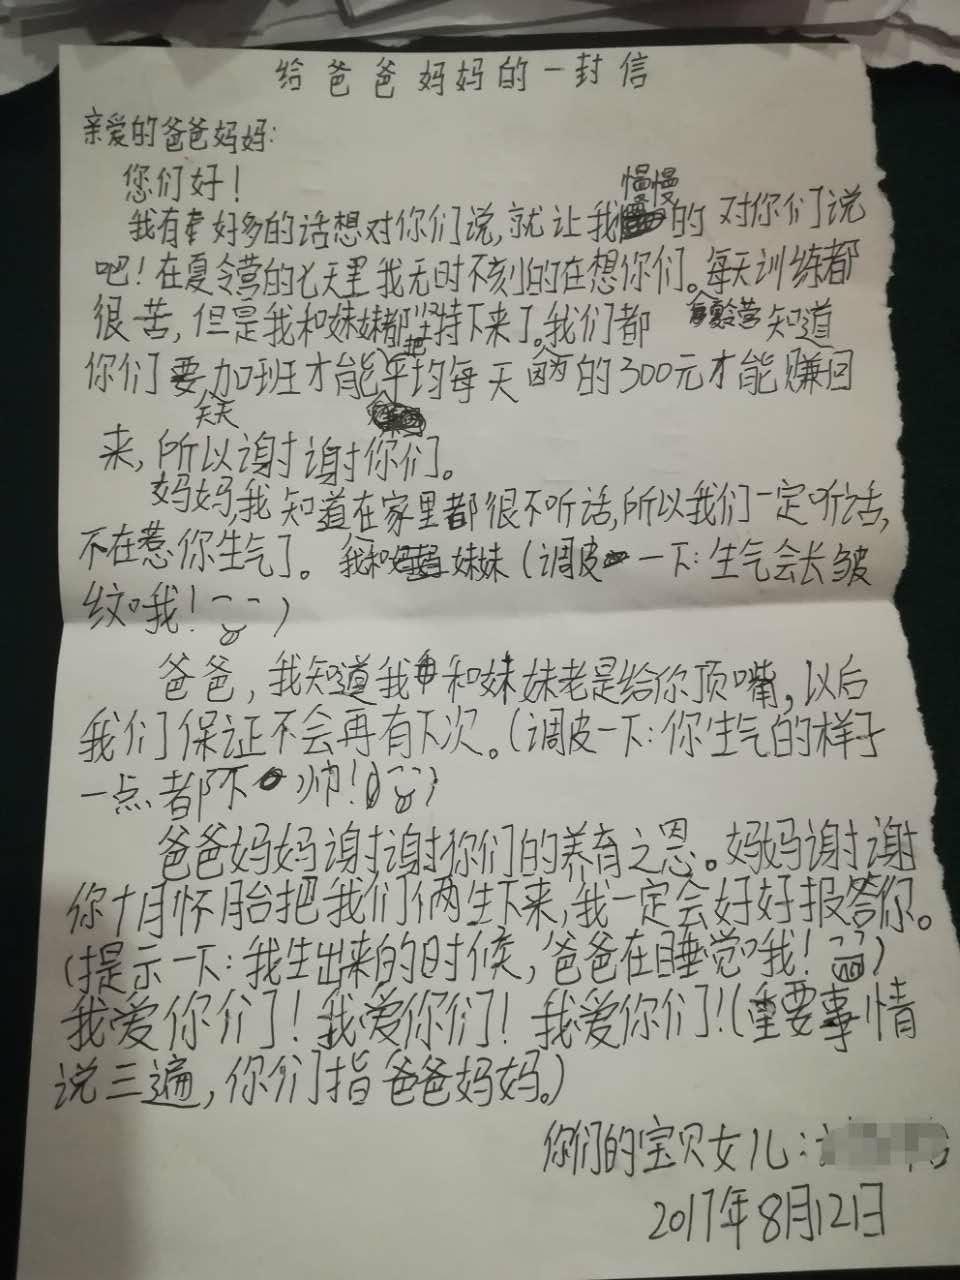 给爸爸妈妈的一封信
亲爱的爸爸妈妈:
您们好!
我有好多的话想对你们说,就让我慢慢的对你们说
吧!在夏令营的七天里我无时不刻的在想你们。每天训练都
很苦,但是我和妹妹都坚持下来了。我们都在夏令营知道
你们要天天加班才能把平均每天两的300元才能赚回
来,所以谢谢你们。
妈妈,我知道在家里都很不听话,所以我们一定听话,
不在惹你生气了。我和妹妹(调皮一下:生气会长皱
纹哦!)
爸爸,我知道我和妹妹老是给你顶嘴,以后
我们保证不会再有下次。(调皮一下:你生气的样子
一点都不帅!)
爸爸妈妈谢谢你们的养育之恩。妈妈谢谢
你十月怀胎把我们俩生下来,我一定会好好报答你。
(提示一下:我生出来的时候,爸爸在睡觉哦!)
我爱你们!我爱你们!我爱你们!(重要事情
说三遍,你们指爸爸妈妈。)
你们的宝贝女儿:
2017年8月12日